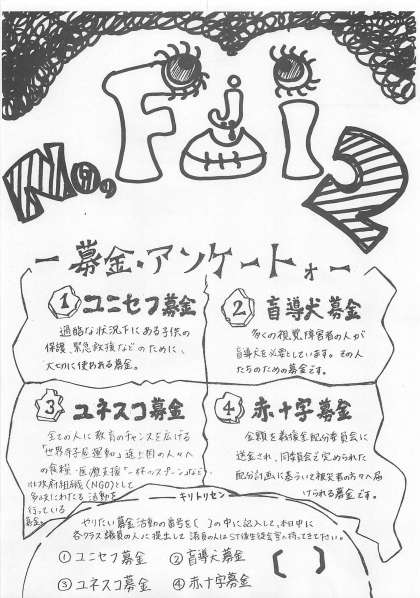 No, 2
Fiji
ー募金・アンケートォー
① ユニセフ募金
過酷な状況下にある子供の
保護、緊急救援などのために、
大切に使われる募金。
② 盲導犬募金
多くの視覚障害者の人が
盲導犬を必要としています。その人
たちのための募金です。
③ ユネスコ募金
全ての人に教育のチャンスを広げる
「世界寺子屋運動」途上国の人々へ
の食糧・医療支援
非政府組織(NGO)として
多岐にわたる活動を
行っている
募金。
④ 赤十字募金
金額を義援金配分委員会に
送金され、同委員会で定められた
配分計画に基づいて被災者の方々へ届
けられる募金です。
キリトリセン
やりたい募金活動の番号を〔 〕の中に記入して、本日中に
各クラス議員の人に提出して 議員の人はST後生徒会室へ持ってきて下さい。
① ユニセフ募金 ② 盲導犬募金
③ ユネスコ募金 ④ 赤十字募金 〔 〕